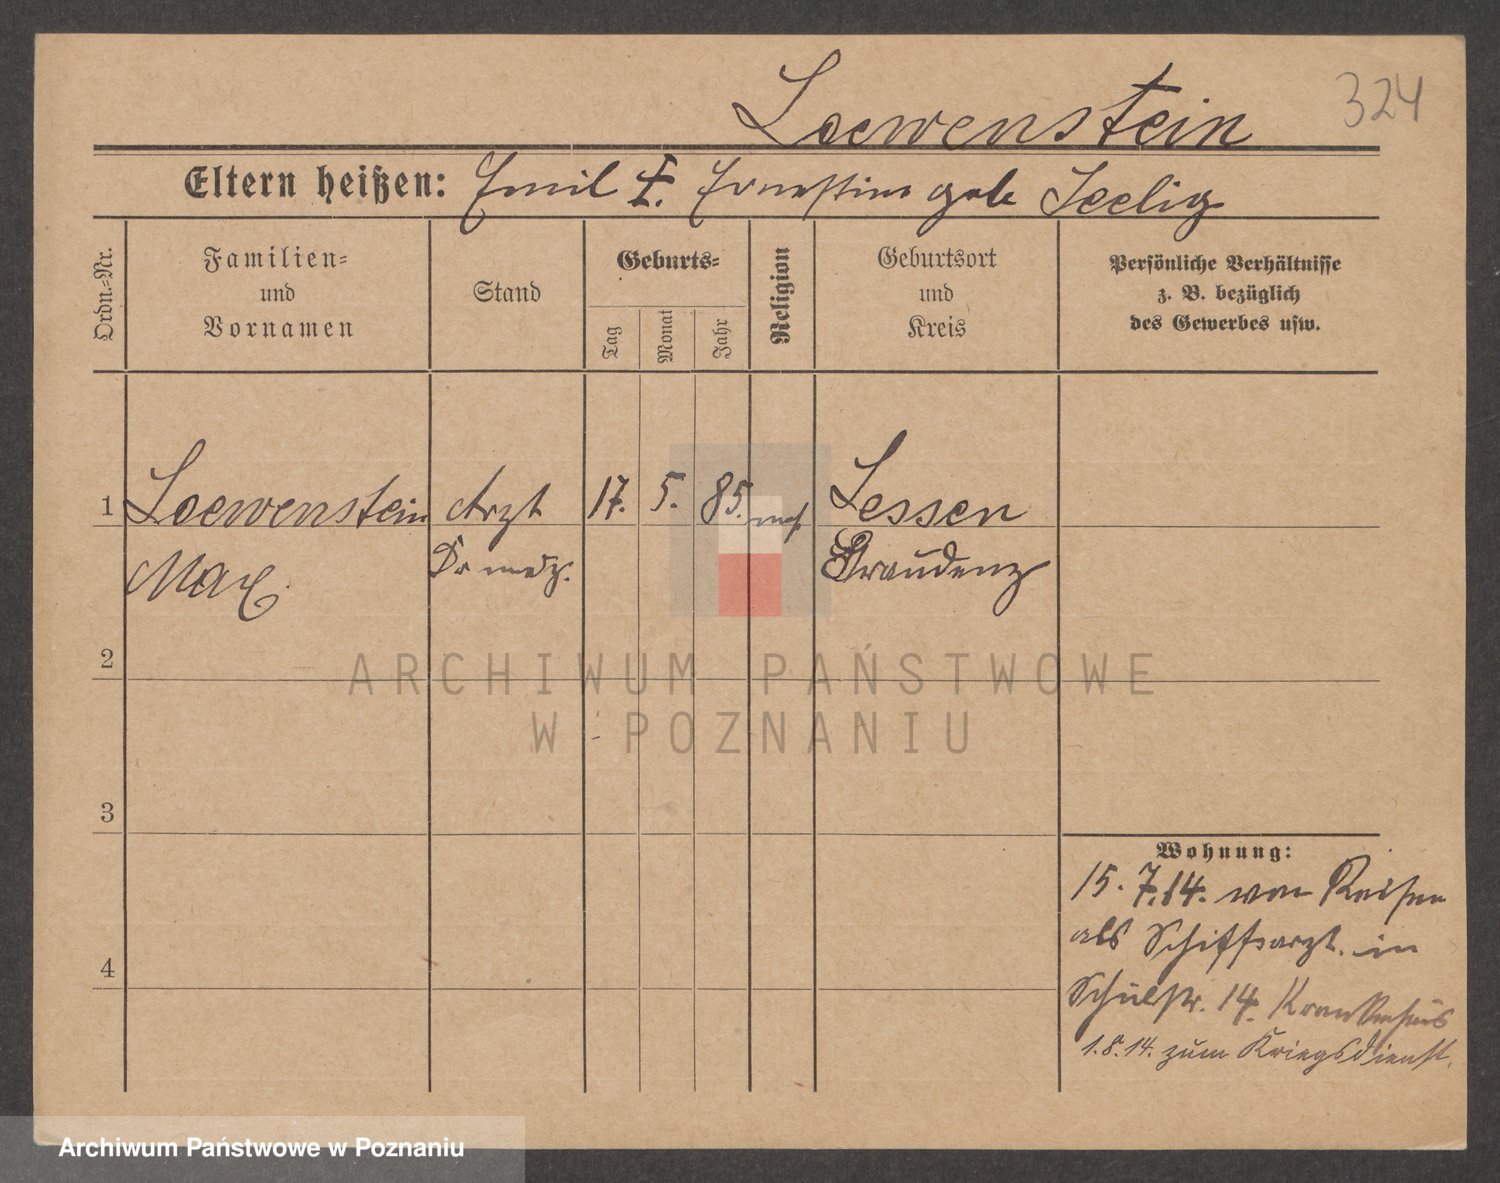 324
Loewenstein
Eltern heißen: Emil Ł. Ernestine geb Seelig
Ordn.-Nr.
Familien-
und
Vornamen
Stand
Geburts-
Tag
Monat
Jahr
Religion
Geburtsort
und
Kreis
Persönliche Verhältnisse
z. B. bezüglich
des Gewerbes usw.
1 Loewenstein Arzt 17. 5. 85. mos. Lessen
Max Dr medz. Graudenz
2
3
4
Wohnung:
15.7.14. von Reisen
als Schiffsarzt. in
Schulstr. 14. Krankenhaus
1.8.14. zum Kriegsdienst.
ARCHIWUM PAŃSTWOWE
W POZNANIU
Archiwum Państwowe w Poznaniu